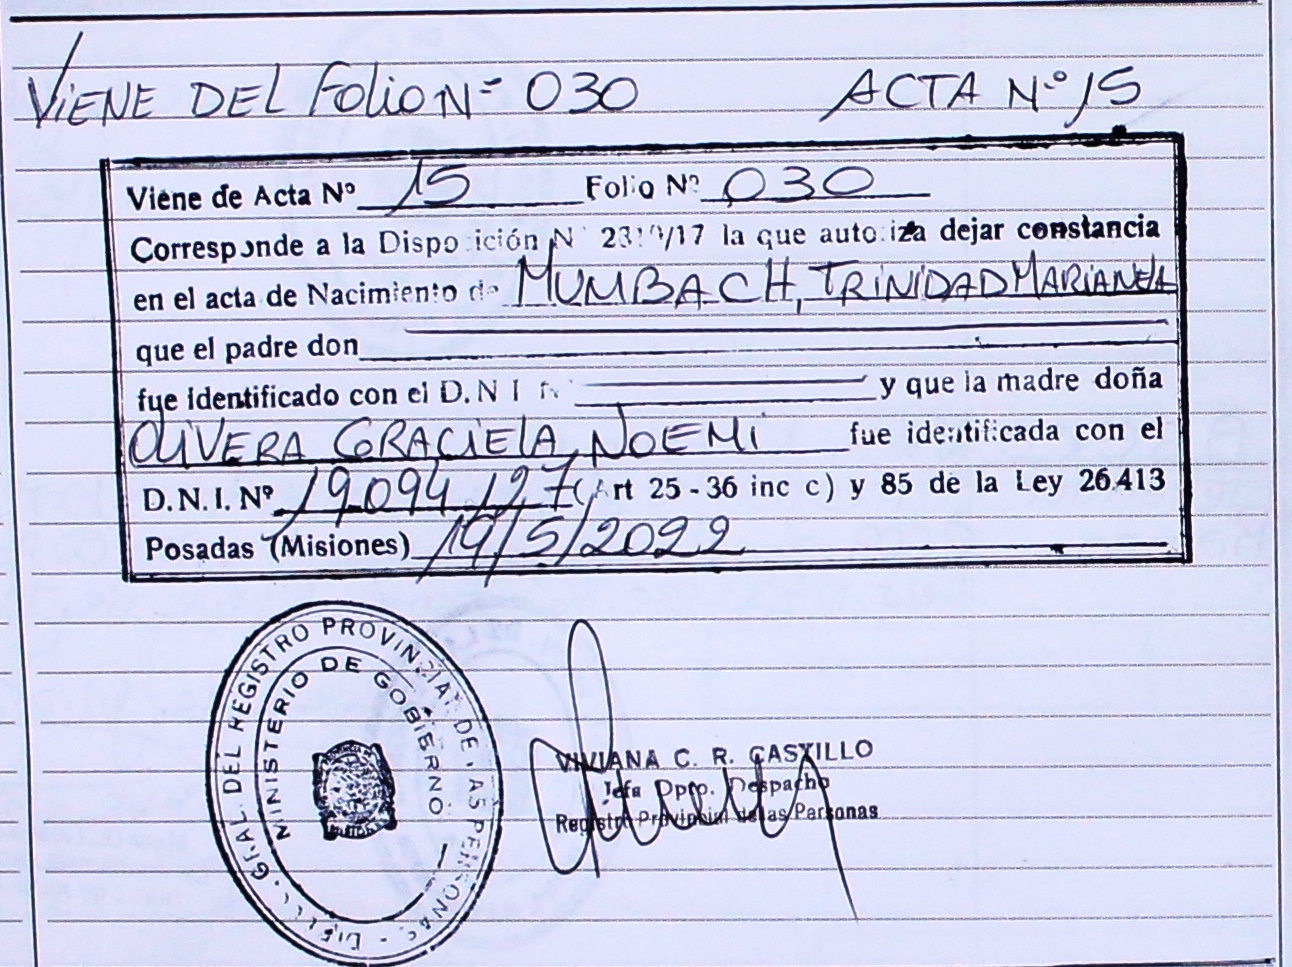 VIENE DEL FOLIO N° 030 ACTA N° 15
Viene de Acta Nº 15 Folio Nº 030
Corresponde a la Disposición N 2310/17 la que autoriza dejar constancia
en el acta de Nacimiento de MUMBACH, TRINIDAD MARIANELA
que el padre don
fue identificado con el D.N I N. y que la madre doña
OLIVERA GRACIELA NOEMI fue identificada con el
D.N.I. Nº 19.094.127 (Art 25 - 36 inc c) y 85 de la Ley 26.413
Posadas (Misiones) 19/5/2022
GRAL DEL REGISTRO PROVINCIAL DE LAS PERSONAS
MINISTERIO DE GOBIERNO
VIVIANA C. R. CASTILLO
Jefa Dpto. Despacho
Registro Provincial de las Personas